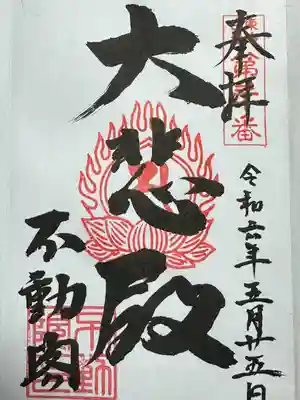 奉拝
令和六年五月廿五日
大悲殿
不動院